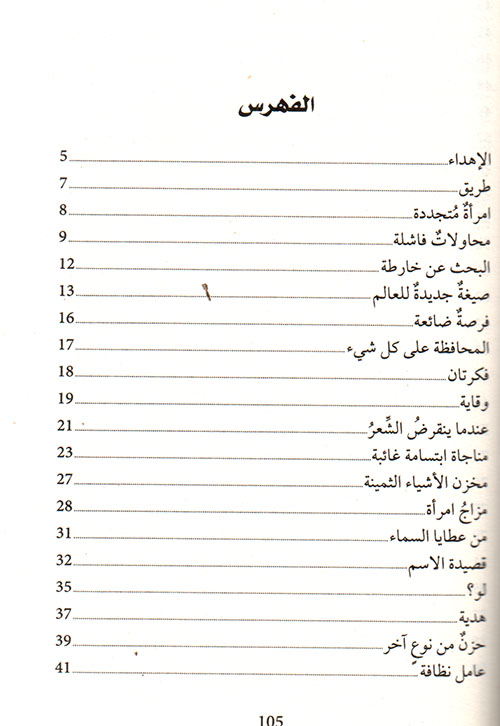 الفهرس
الإهداء 5
طريق 7
امرأةٌ مُتجددة 8
محاولاتٌ فاشلة 9
البحث عن خارطة 12
صيغةٌ جديدةٌ للعالم 13
فرصةٌ ضائعة 16
المحافظة على كل شيء 17
فكرتان 18
وقاية 19
عندما ينقرضُ الشِّعرُ 21
مناجاة ابتسامة غائبة 23
مخزن الأشياء الثمينة 27
مزاجُ امرأة 28
من عطايا السماء 31
قصيدة الاسم 32
لو؟ 35
هدية 37
حزنٌ من نوعٍ آخر 39
عامل نظافة 41
105